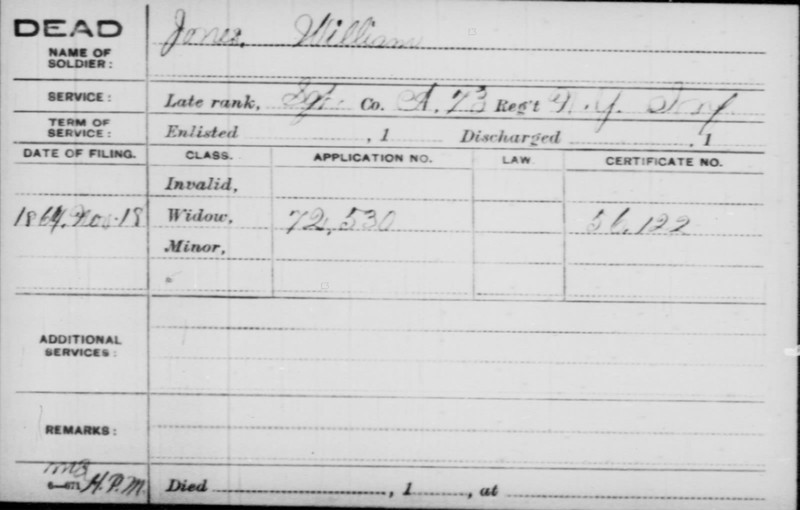 DEAD
NAME OF SOLDIER: Jones, William
SERVICE: Late rank, Sgt. Co. A, 73 Reg't N.Y. Inf
TERM OF SERVICE: Enlisted , 1 Discharged , 1
DATE OF FILING. CLASS. APPLICATION NO. LAW. CERTIFICATE NO.
Invalid,
1864, Nov. 18 Widow, 72,530 56,122
Minor,
ADDITIONAL SERVICES:
REMARKS:
6—671 H.P.M. Died , 1 , at